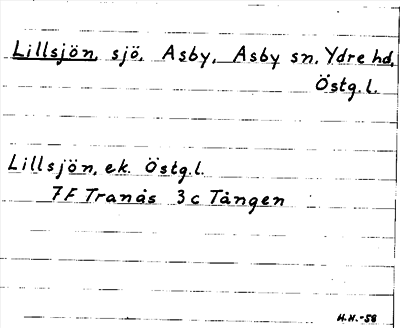 Lillsjön, sjö, Asby, Asby sn. Ydre hd,
Östg.l.
Lillsjön, ek. Östg.l.
7F Tranås 3c Tången
H.H.-58